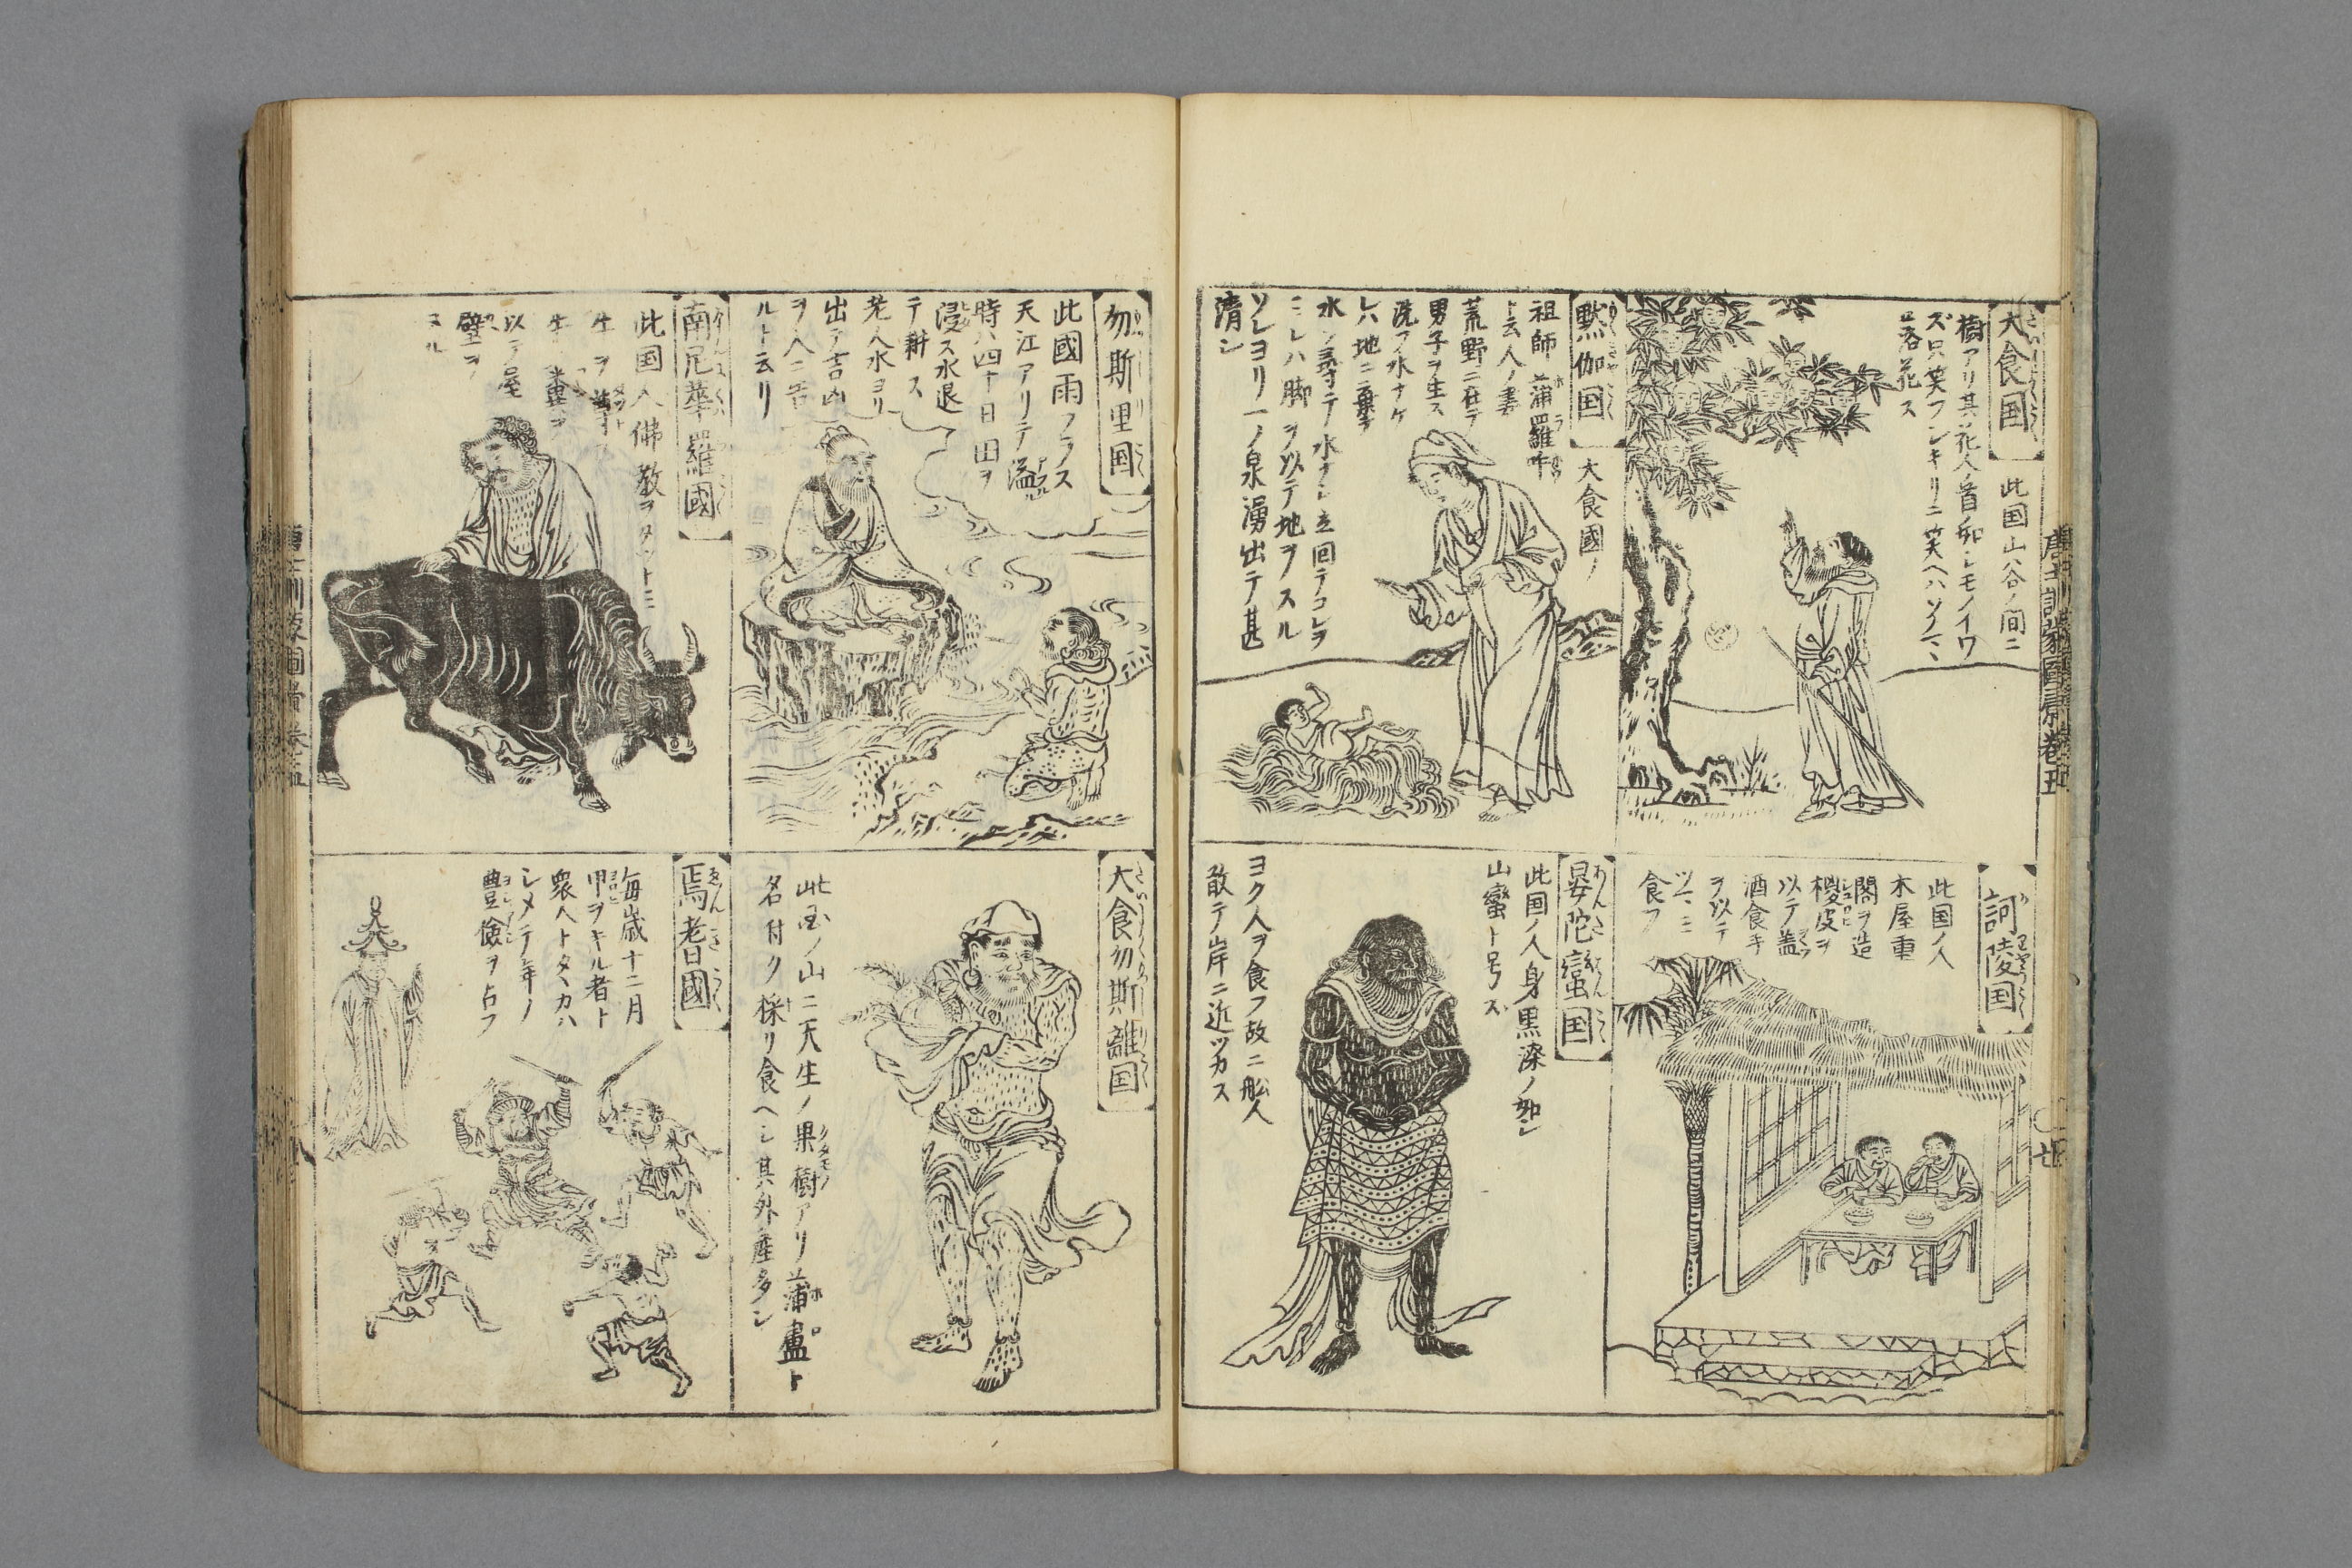 唐土訓蒙圖彙巻五
大食国
此国山谷ノ間ニ
樹アリ其花人ノ首ノ如シモノイワ
ズ只笑フシキリニ笑ヘハソノマヽ
落花ス
黙伽国
大食國ノ
祖師蒲羅吽
ト云人ノ妻
荒野ニ在テ
男子ヲ生ス
洗フ水ナケ
レハ地ニ棄テ
水ヲ尋テ水ナシ立回テコレヲ
ミレハ脚ヲ以テ地ヲスル
ソレヨリ一ノ泉湧出テ甚
清シ
訶陵国
此国ノ人
木屋重
閣ヲ造
椶皮ヲ
以テ蓋
酒食手
ヲ以テ
ツマミ
食フ
晏陀蠻国
此国ノ人身黒漆ノ如シ
山蠻ト号ス
ヨク人ヲ食フ故ニ舩人
敢テ岸ニ近ツカス
勿斯里国
此國雨フラス
天江アリテ溢
時ハ四十日田ヲ
浸ス水退
テ耕ス
老人水ヨリ
出テ吉凶
ヲ人ニ告
ルト云リ
南尼華羅國
此国人佛教ヲタツトミ
牛ヲ
牛糞ヲ
以テ屋
壁ヲ
ヌル
大食勿斯離国
此国ノ山ニ天生ノ果樹アリ蒲盧ト
名付ク採リ食ヘシ其外ノ産多シ
焉耆國
毎歳十二月
甲ヲキル者ト
衆人トタヽカハ
シメテ年ノ
豊儉ヲ占フ